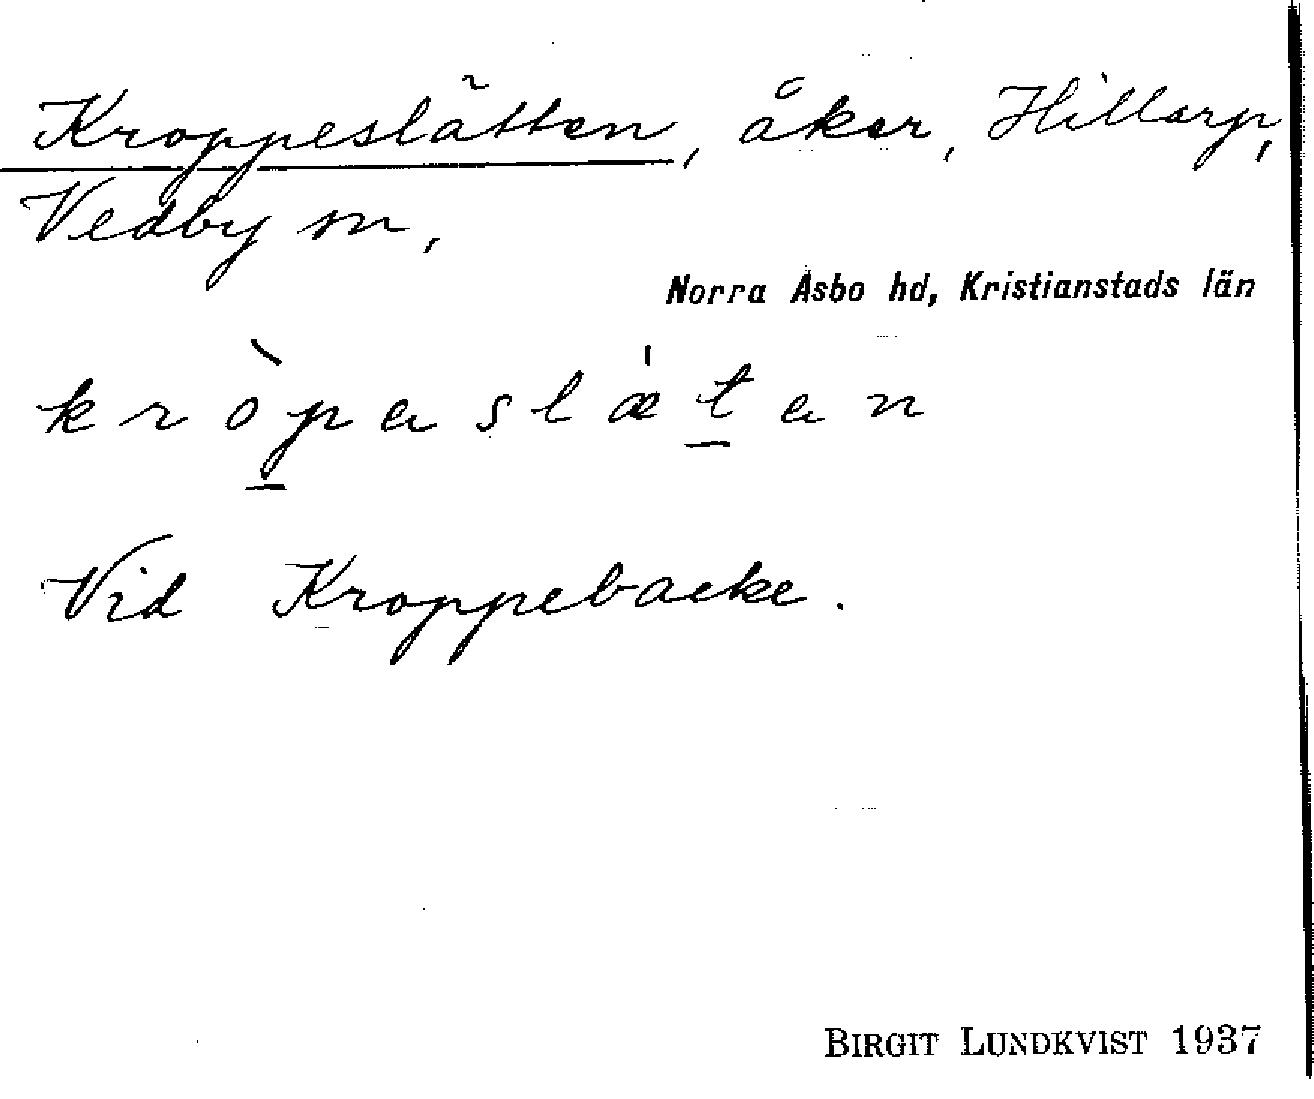 Kroppeslätten, åker, Hillarp,
Vedby sn,
Norra Åsbo hd, Kristianstads län
kròpaslǽtan
Vid Kroppebacke.
BIRGIT LUNDKVIST 1937